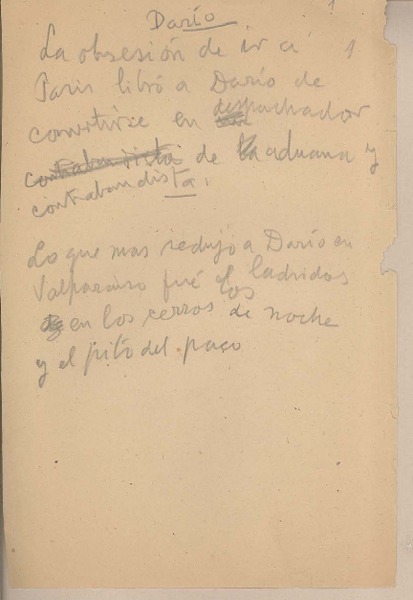 1
Darío
La obsesión de ir a 1
Paris libró a Darío de
convertirse en despachador
contrabandista de la aduana y
contrabandista.
Lo que mas sedujo a Darío en
Valparaiso fué el ladridos
en los cerros de noche
y el pito del paco